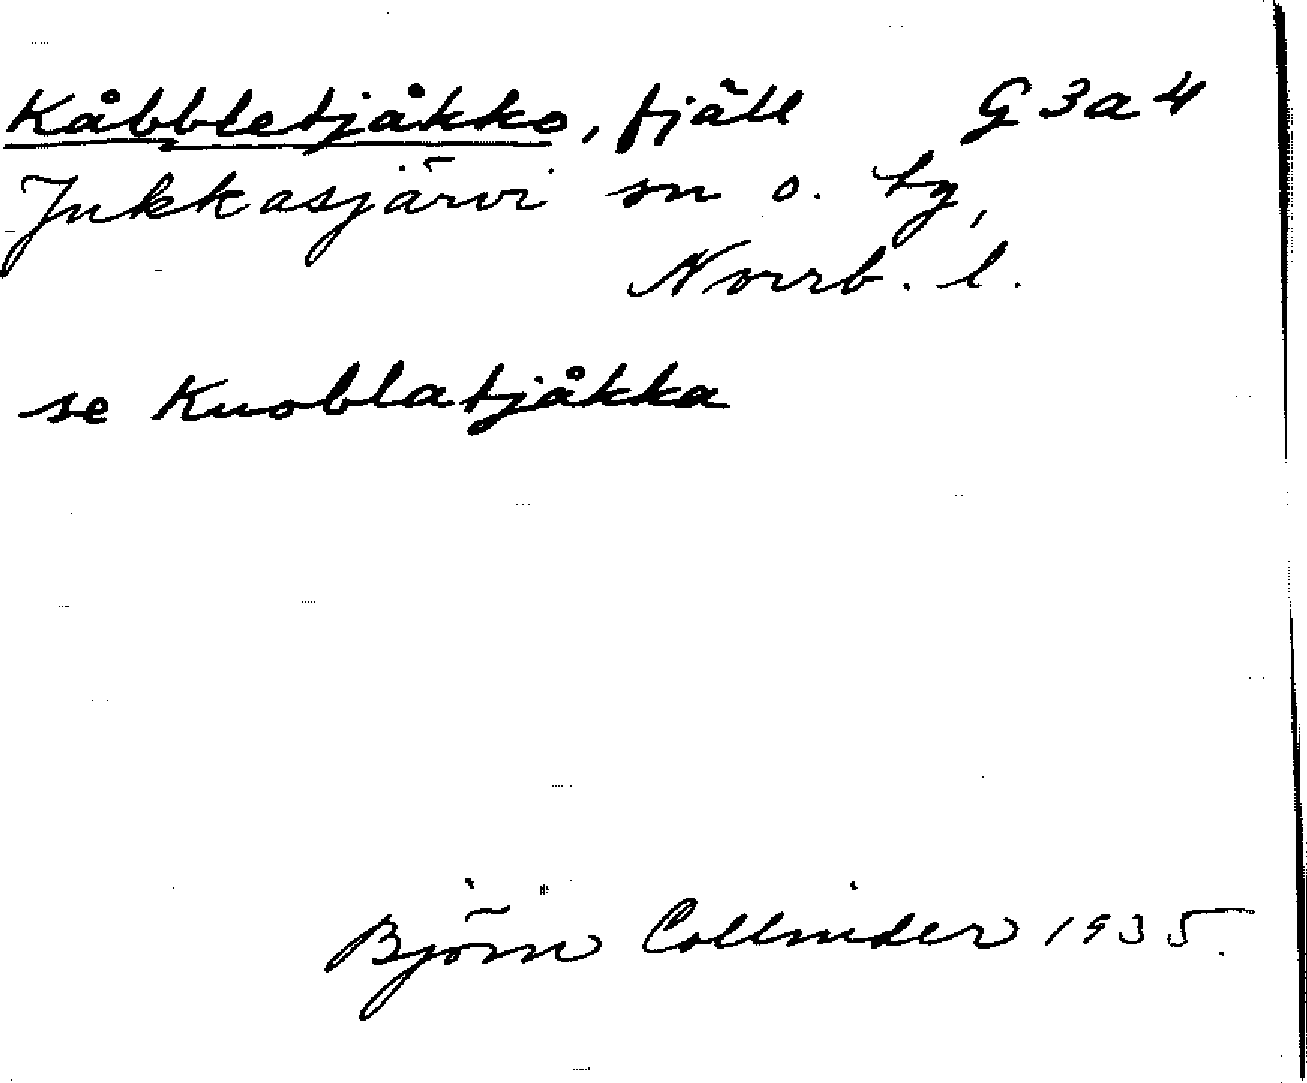 Kåbbletjåkko, fjäll G3a4
Jukkasjärvi sn o. tg,
Norrb. l.
se Kuoblatjåkka
Björn Collinder 1935.